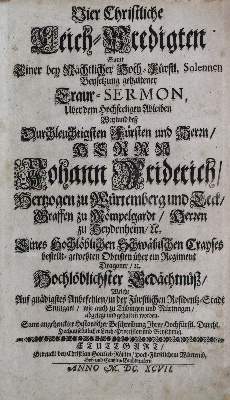 Vier Christliche
Leich-Predigten
Samt
Einer bey Nächtlicher Hoch-Fürstl. Solennen
Beysetzung gehaltener
Traur-SERMON,
Uber dem Hochseeligen Ableiben
Weyland deß
Durchleuchtigsten Fürsten und Herrn/
HERRN
Johann Friderich/
Hertzogen zu Würtemberg und Teck/
Graffen zu Mömpelgardt/ Herren
zu Heydenheim/ &c.
Eines Hochlöblichen Schwäbischen Crayses
bestellt-gewesten Obristen über ein Regiment
Dragoner/ &c.
Hochlöblichster Gedächtnüß/
Welche
Auf gnädigstes Anbefehlen/ in der Fürstlichen Residentz-Stadt
Stuttgart/ wie auch zu Tübingen und Nürtingen/
abgelegt und gehalten worden.
Samt angehenckter Historischer Beschreibung Ihrer Hochfürstl. Durchl.
STUTTGART/
ANNO M. DC. XCVII.